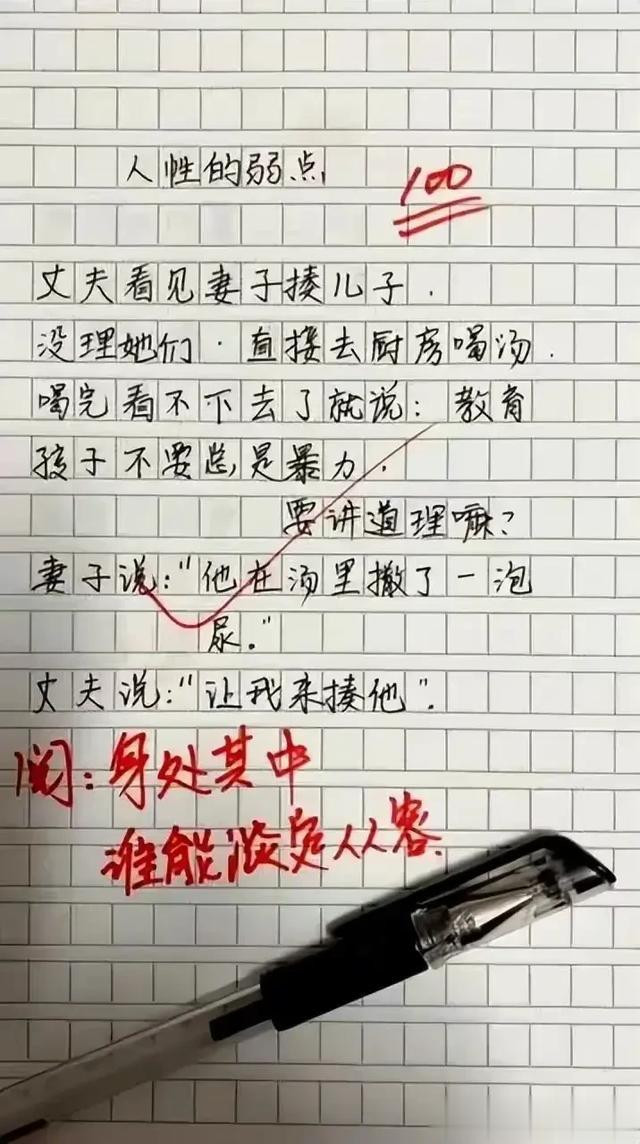 人性的弱点
100
丈夫看见妻子揍儿子.
没理她们.直接去厨房喝汤.
喝完看不下去了就说:教育
孩子不要总是暴力.
要讲道理嘛?
妻子说:"他在汤里撒了一泡
尿."
丈夫说:"让我来揍他".
阅:身处其中
谁能淡定从容.